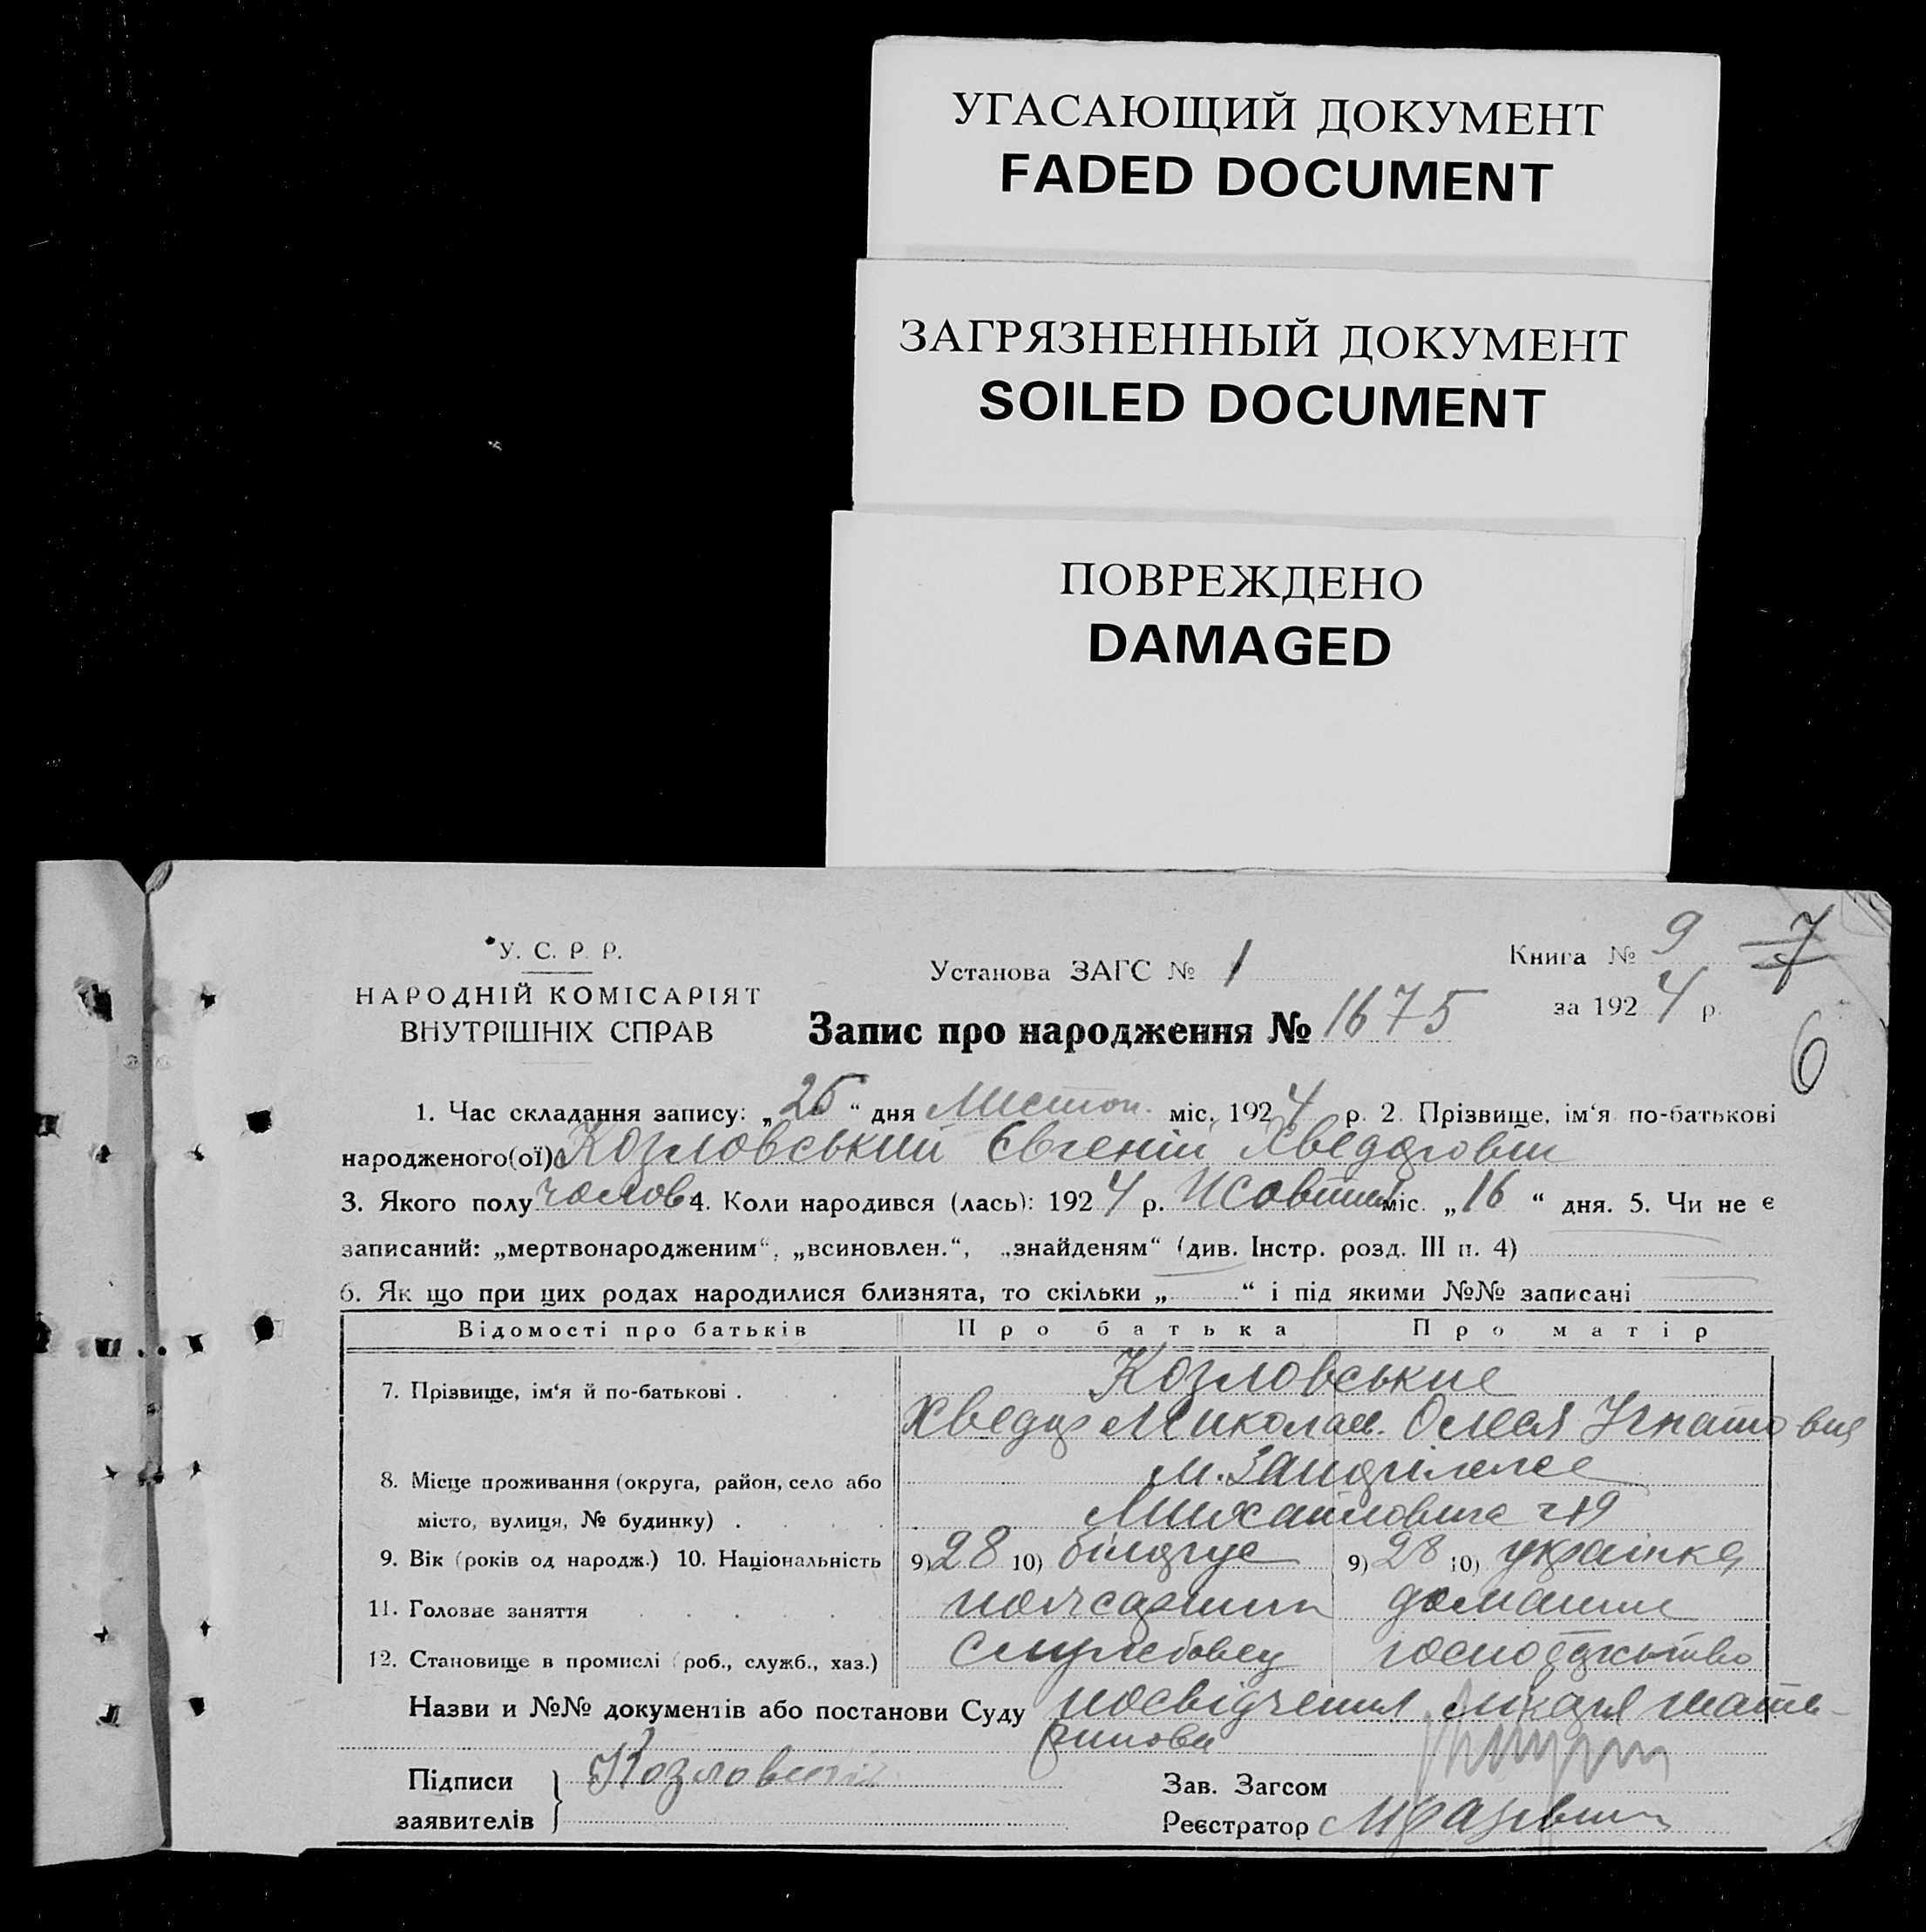 УГАСАЮЩИЙ ДОКУМЕНТ
FADED DOCUMENT
ЗАГРЯЗНЕННЫЙ ДОКУМЕНТ
SOILED DOCUMENT
ПОВРЕЖДЕНО
DAMAGED
У. С. Р. Р.
НАРОДНІЙ КОМІСАРІЯТ
ВНУТРІШНІХ СПРАВ
Установа ЗАГС № 1
Книга № 9 7
за 1924 р.
Запис про народження № 1675
6
1. Час складання запису: „25“ дня Листоп. міс. 1924 р. 2. Прізвище, ім‘я по-батькові
народженого(ої) Козловський Євгеній Хведорович
3. Якого полу чолов 4. Коли народився (лась): 1924 р. Жовтня міс. „16“ дня. 5. Чи не є
записаний: „мертвонародженим“, „всиновлен.“, „знайденям“ (див. Інстр. розд. III п. 4)
6. Як що при цих родах народилися близнята, то скільки „ “ і під якими №№ записані
Відомості про батьків Про батька Про матір
7. Прізвище, ім‘я й по-батькові . Козловські
Хведір Миколаєв. Олеся Ігнатовна
8. Місце проживання (округа, район, село або
місто, вулиця, № будинку) .
9. Вік (років од народж.) 10. Національність 9) 28 10) білорус 9) 28 10) українка
11. Головне заняття домашнє
12. Становище в промислі (роб., служб., хаз.) Службовец господарьство
Назви и №№ документів або постанови Суду посвідчення лікаря
Підписи
заявителів } Козловский
Зав. Загсом
Реєстратор